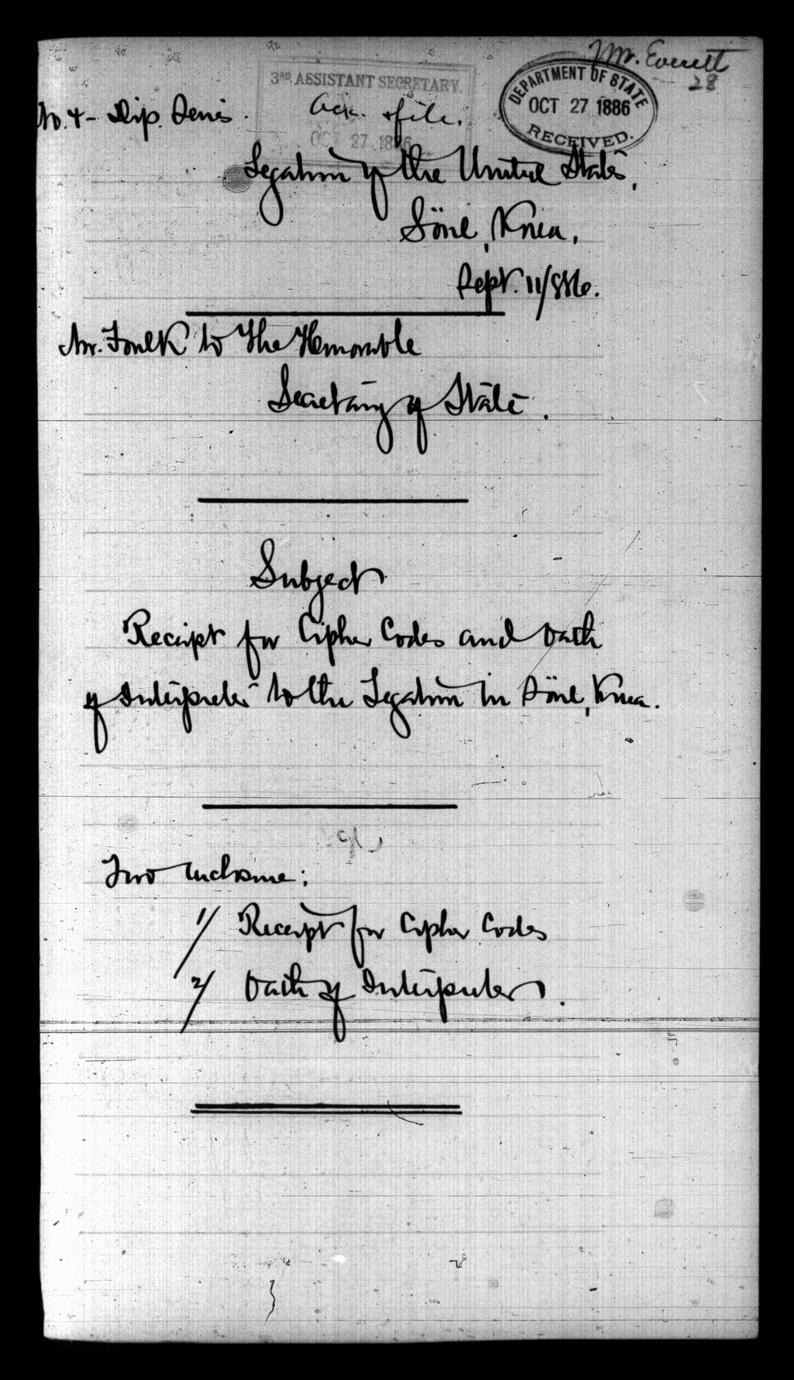 Mr. Everett
28
3RD. ASSISTANT SECRETARY.
OCT 27 1886
DEPARTMENT OF STATE
OCT 27 1886
RECEIVED.
No. 4 - Dip. Series.
Ack. & file.
Legation of the United States,
Söul, Korea,
Sept. 11/886.
Mr. Foulk to the Honorable
Secretary of State.
Subject
Receipt for Cipher Codes and Oath
of Interpreter to the Legation in Söul, Korea.
Two inclosure:
1/ Receipt for Cipher Codes
2/ Oath of Interpreter.